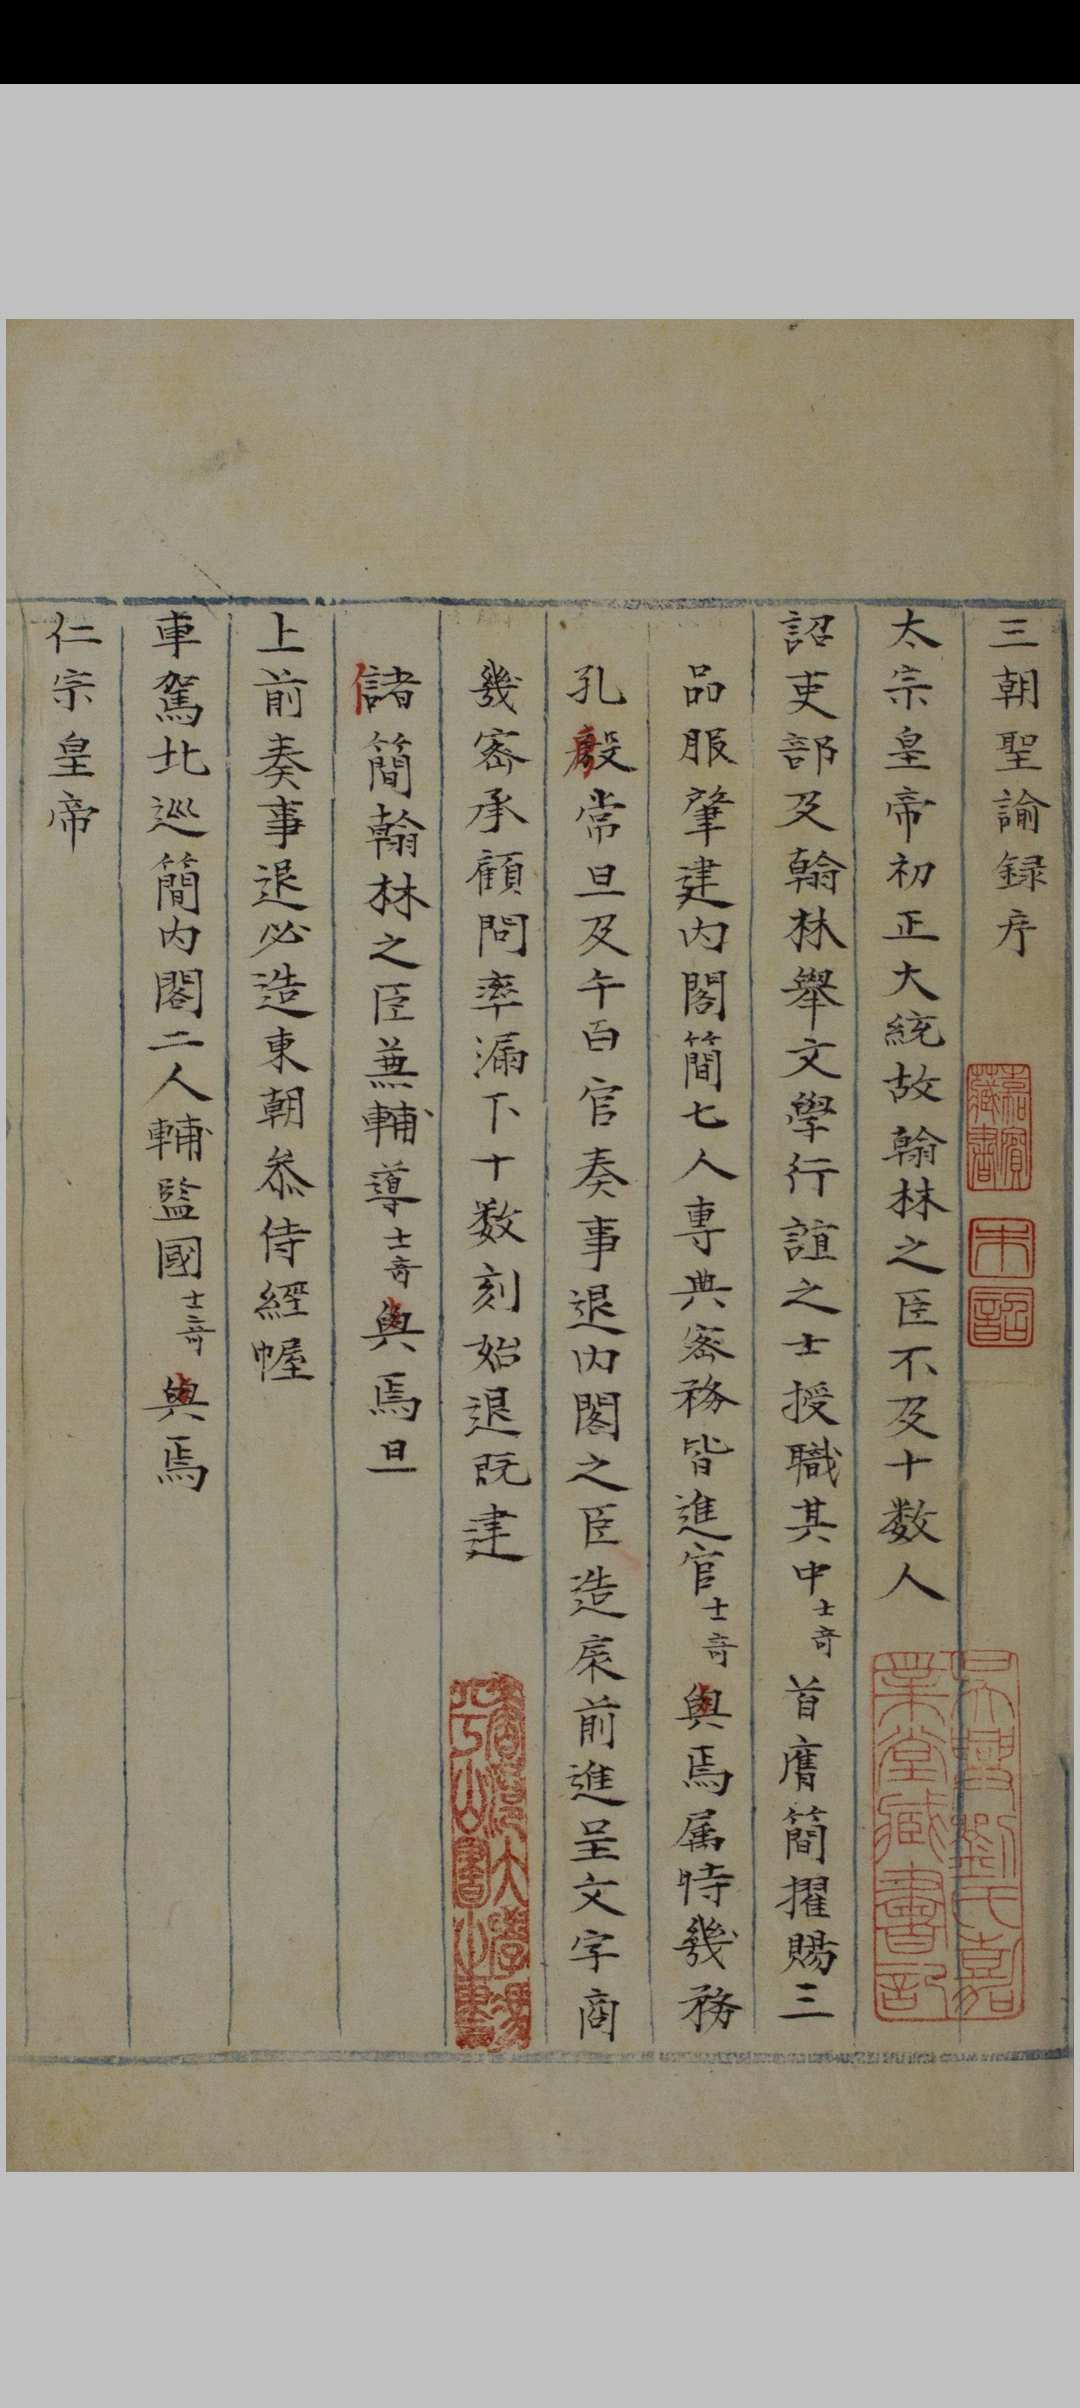 三朝聖諭録序
太宗皇帝初正大統故翰林之臣不及十数人
詔吏部及翰林舉文學行誼之士授職其中士奇首膺簡擢賜三
品服肇建内閣簡七人專典宻務皆進官士奇與焉属時幾務
孔殷常旦及午百官奏事退内閣之臣造扆前進呈文字商
幾宻承顧問率漏下十数刻始退既建
儲簡翰林之臣兼輔導士奇與焉旦
上前奏事退必造東朝叅侍經幄
車駕北巡簡内閣二人輔監國士奇與焉
仁宗皇帝
嘉賓藏書
吳興劉氏嘉業堂藏書記